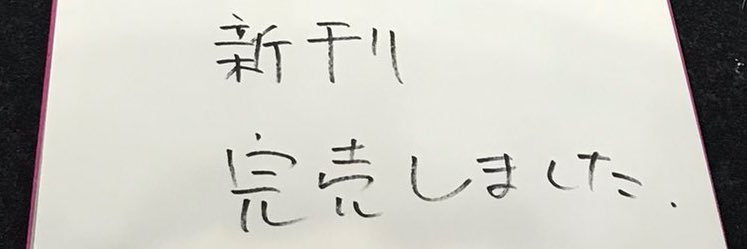 新刊
完売しました.